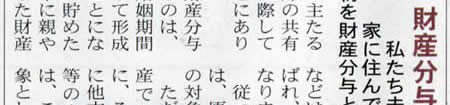 財産分与
私たち夫
家に住んで
物を財産分与と
などは
ばれ
なりま
従
は、原
の対象
ただ
産で
に、そ
に他方
等の
は、こ
象と
主たる
の共有
際して
にあり
財産分与
のは、
婚姻期間
て形成
とにな
貯めた
に親や
た財産